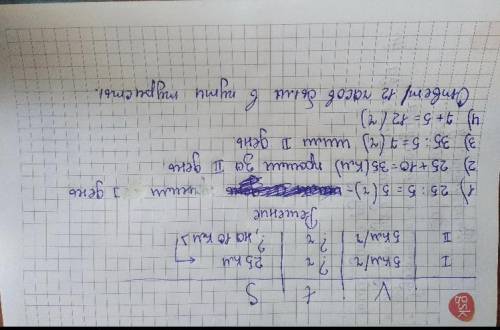 V t S
I 5км/ч ? ч 25км
II 5км/ч ? ч ?, на 10 км >
Решение
1) 25 : 5 = 5 (ч) - шли I день
2) 25 + 10 = 35 (км) прошли за II день.
3) 35 : 5 = 7 (ч) шли II день
4) 7 + 5 = 12 (ч)
Ответ: 12 часов были в пути туристы.